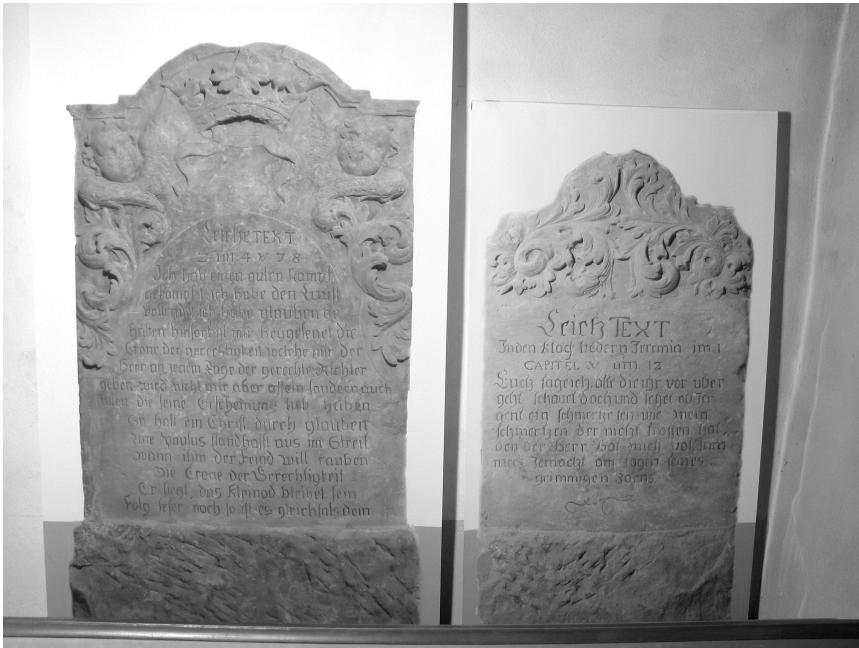 Leiche TEXT
2 TIM 4 V 7 8
Ich hab einen guten Kampf
gekämpft ich habe den Lauff
habe glauben
halten hinfort ist mir beygeleget die
Crone der gerechtigkeit welche mir der
Herr an jenem Tage der gerechte Richter
geben wird nicht mir aber allein sondern auch
allen die seine Erscheinung lieb haben
So halt ein Christ durch glauben
Wie Paulus standhaft aus im Streit
Wann ihm der Feind will rauben
Die Crone der Gerechtigkeit
Er siegt, das Kleinod bleibet sein
Folg leser noch so ist es gleichfals dein
Leich TEXT
In den Klag liedern Jeremia im 1
CAPITEL V um 12
Euch sage ich alle die ihr vor über
geht schauet doch und sehet ob Jr
gent ein schmertze sey wie mein
schmertzen der mich troffen hat,
den der Herr hat mich vol Jam
mers gemacht am tagen seines
grimmigen Zorns